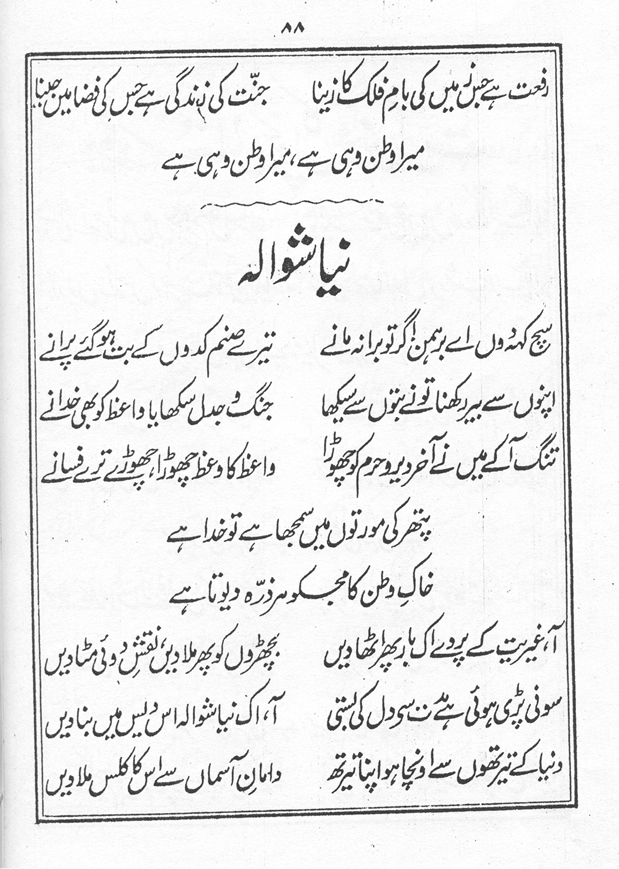 ۸۸
رفعت ہے جس زمیں کی بامِ فلک کا زینا جنّت کی زندگی ہے جس کی فضا میں جینا
میرا وطن وہی ہے، میرا وطن وہی ہے
نیا شوالہ
سچ کہہ دوں اے برہمن! گر تو برا نہ مانے تیرے صنم کدوں کے بت ہو گئے پرانے
اپنوں سے بیر رکھنا تو نے بتوں سے سیکھا جنگ و جدل سکھایا واعظ کو بھی خدا نے
تنگ آ کے میں نے آخر دیر و حرم کو چھوڑا واعظ کا وعظ چھوڑا، چھوڑے ترے فسانے
پتھر کی مورتوں میں سمجھا ہے تو خدا ہے
خاکِ وطن کا مجکو ہر ذرّہ دیوتا ہے
آ، غیریت کے پردے اک بار پھر اٹھا دیں بچھڑوں کو پھر ملا دیں، نقشِ دوئی مٹا دیں
سونی پڑی ہوئی ہے مدت سے دل کی بستی آ، اک نیا شوالہ اس دیس میں بنا دیں
دنیا کے تیرتھوں سے اونچا ہو اپنا تیرتھ دامانِ آسماں سے اس کا کلس ملا دیں